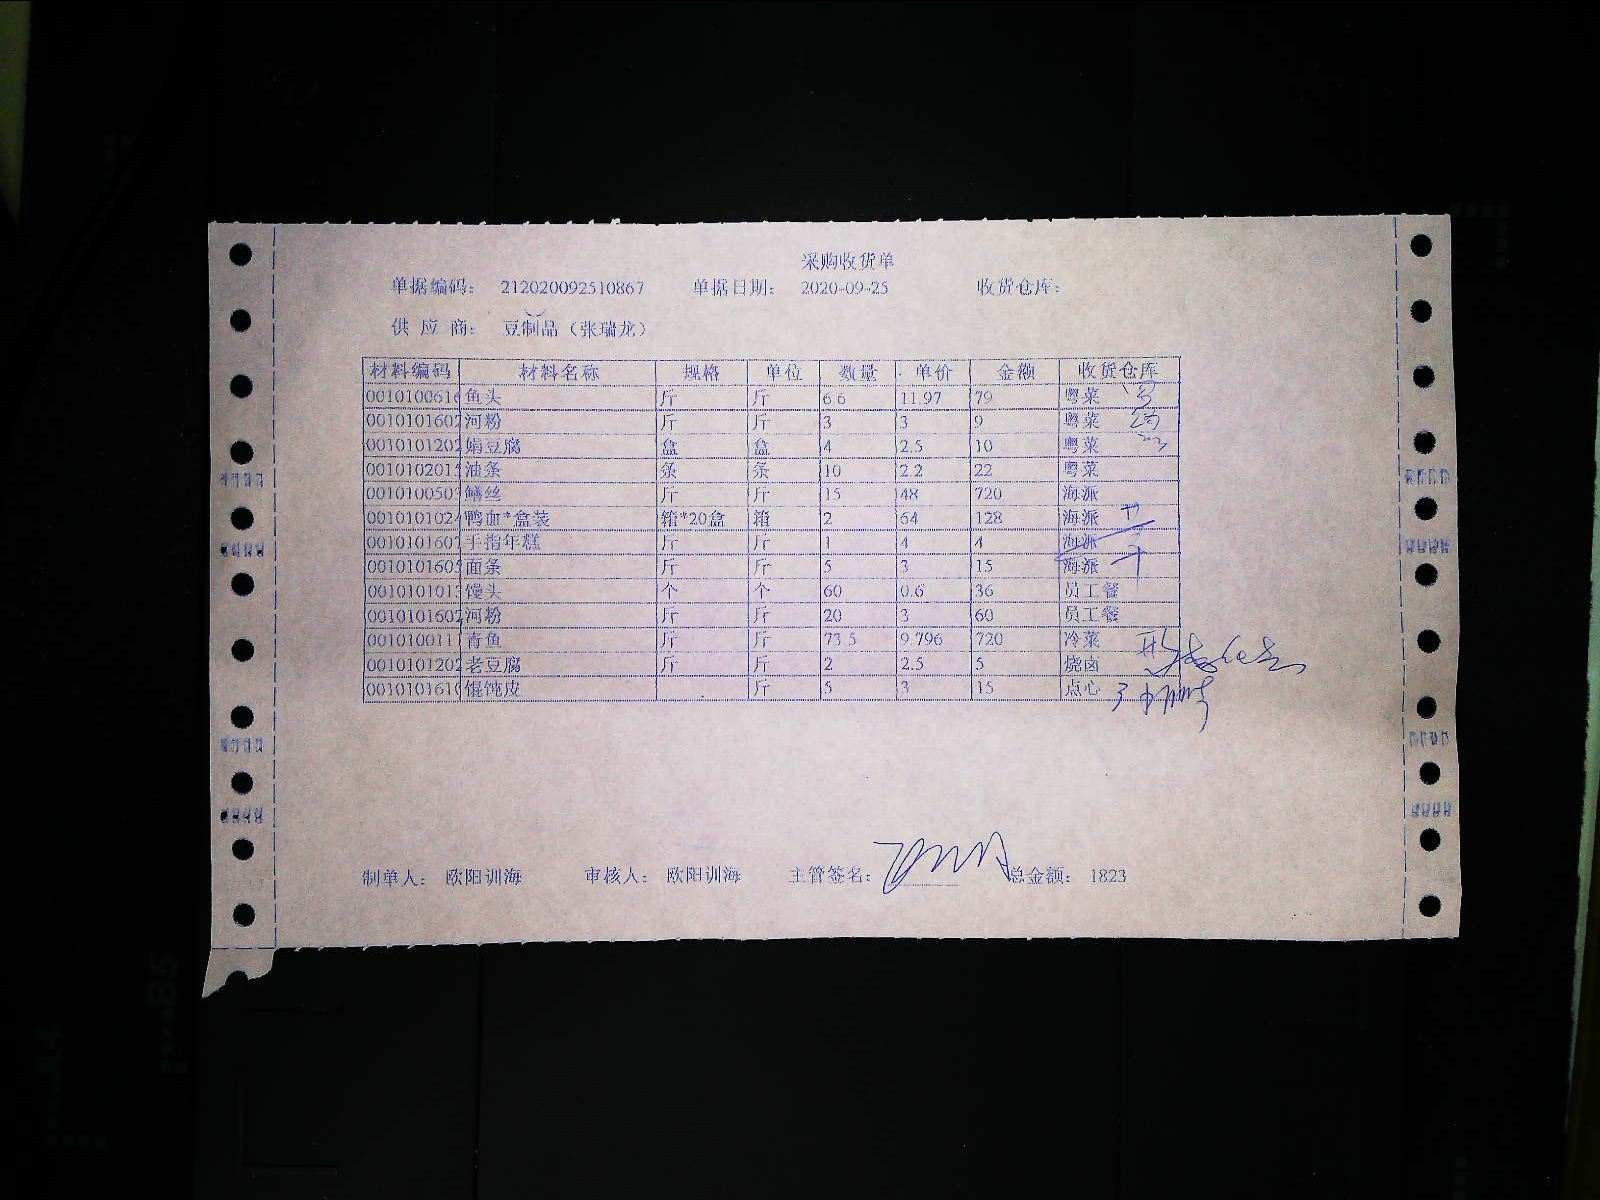 采购收货单
单据编码： 212020092510867 单据日期： 2020-09-25 收货仓库：
供 应 商： 豆制品（张瑞龙）
材料编码 材料名称 规格 单位 数量 单价 金额 收货仓库
0010100616 鱼头 斤 斤 6.6 11.97 79 粤菜
0010101602 河粉 斤 斤 3 3 9 粤菜
0010101202 娟豆腐 盒 盒 4 2.5 10 粤菜
0010102015 油条 条 条 10 2.2 22 粤菜
0010100503 鳝丝 斤 斤 15 48 720 海派
0010101024 鸭血*盒装 箱*20盒 箱 2 64 128 海派
0010101607 手指年糕 斤 斤 1 4 4 海派
0010101605 面条 斤 斤 5 3 15 海派
0010101013 馒头 个 个 60 0.6 36 员工餐
0010101602 河粉 斤 斤 20 3 60 员工餐
0010100111 青鱼 斤 斤 73.5 9.796 720 冷菜
0010101202 老豆腐 斤 斤 2 2.5 5 烧卤
0010101610 馄饨皮 斤 5 3 15 点心
制单人： 欧阳训海 审核人： 欧阳训海 主管签名： 总金额： 1823